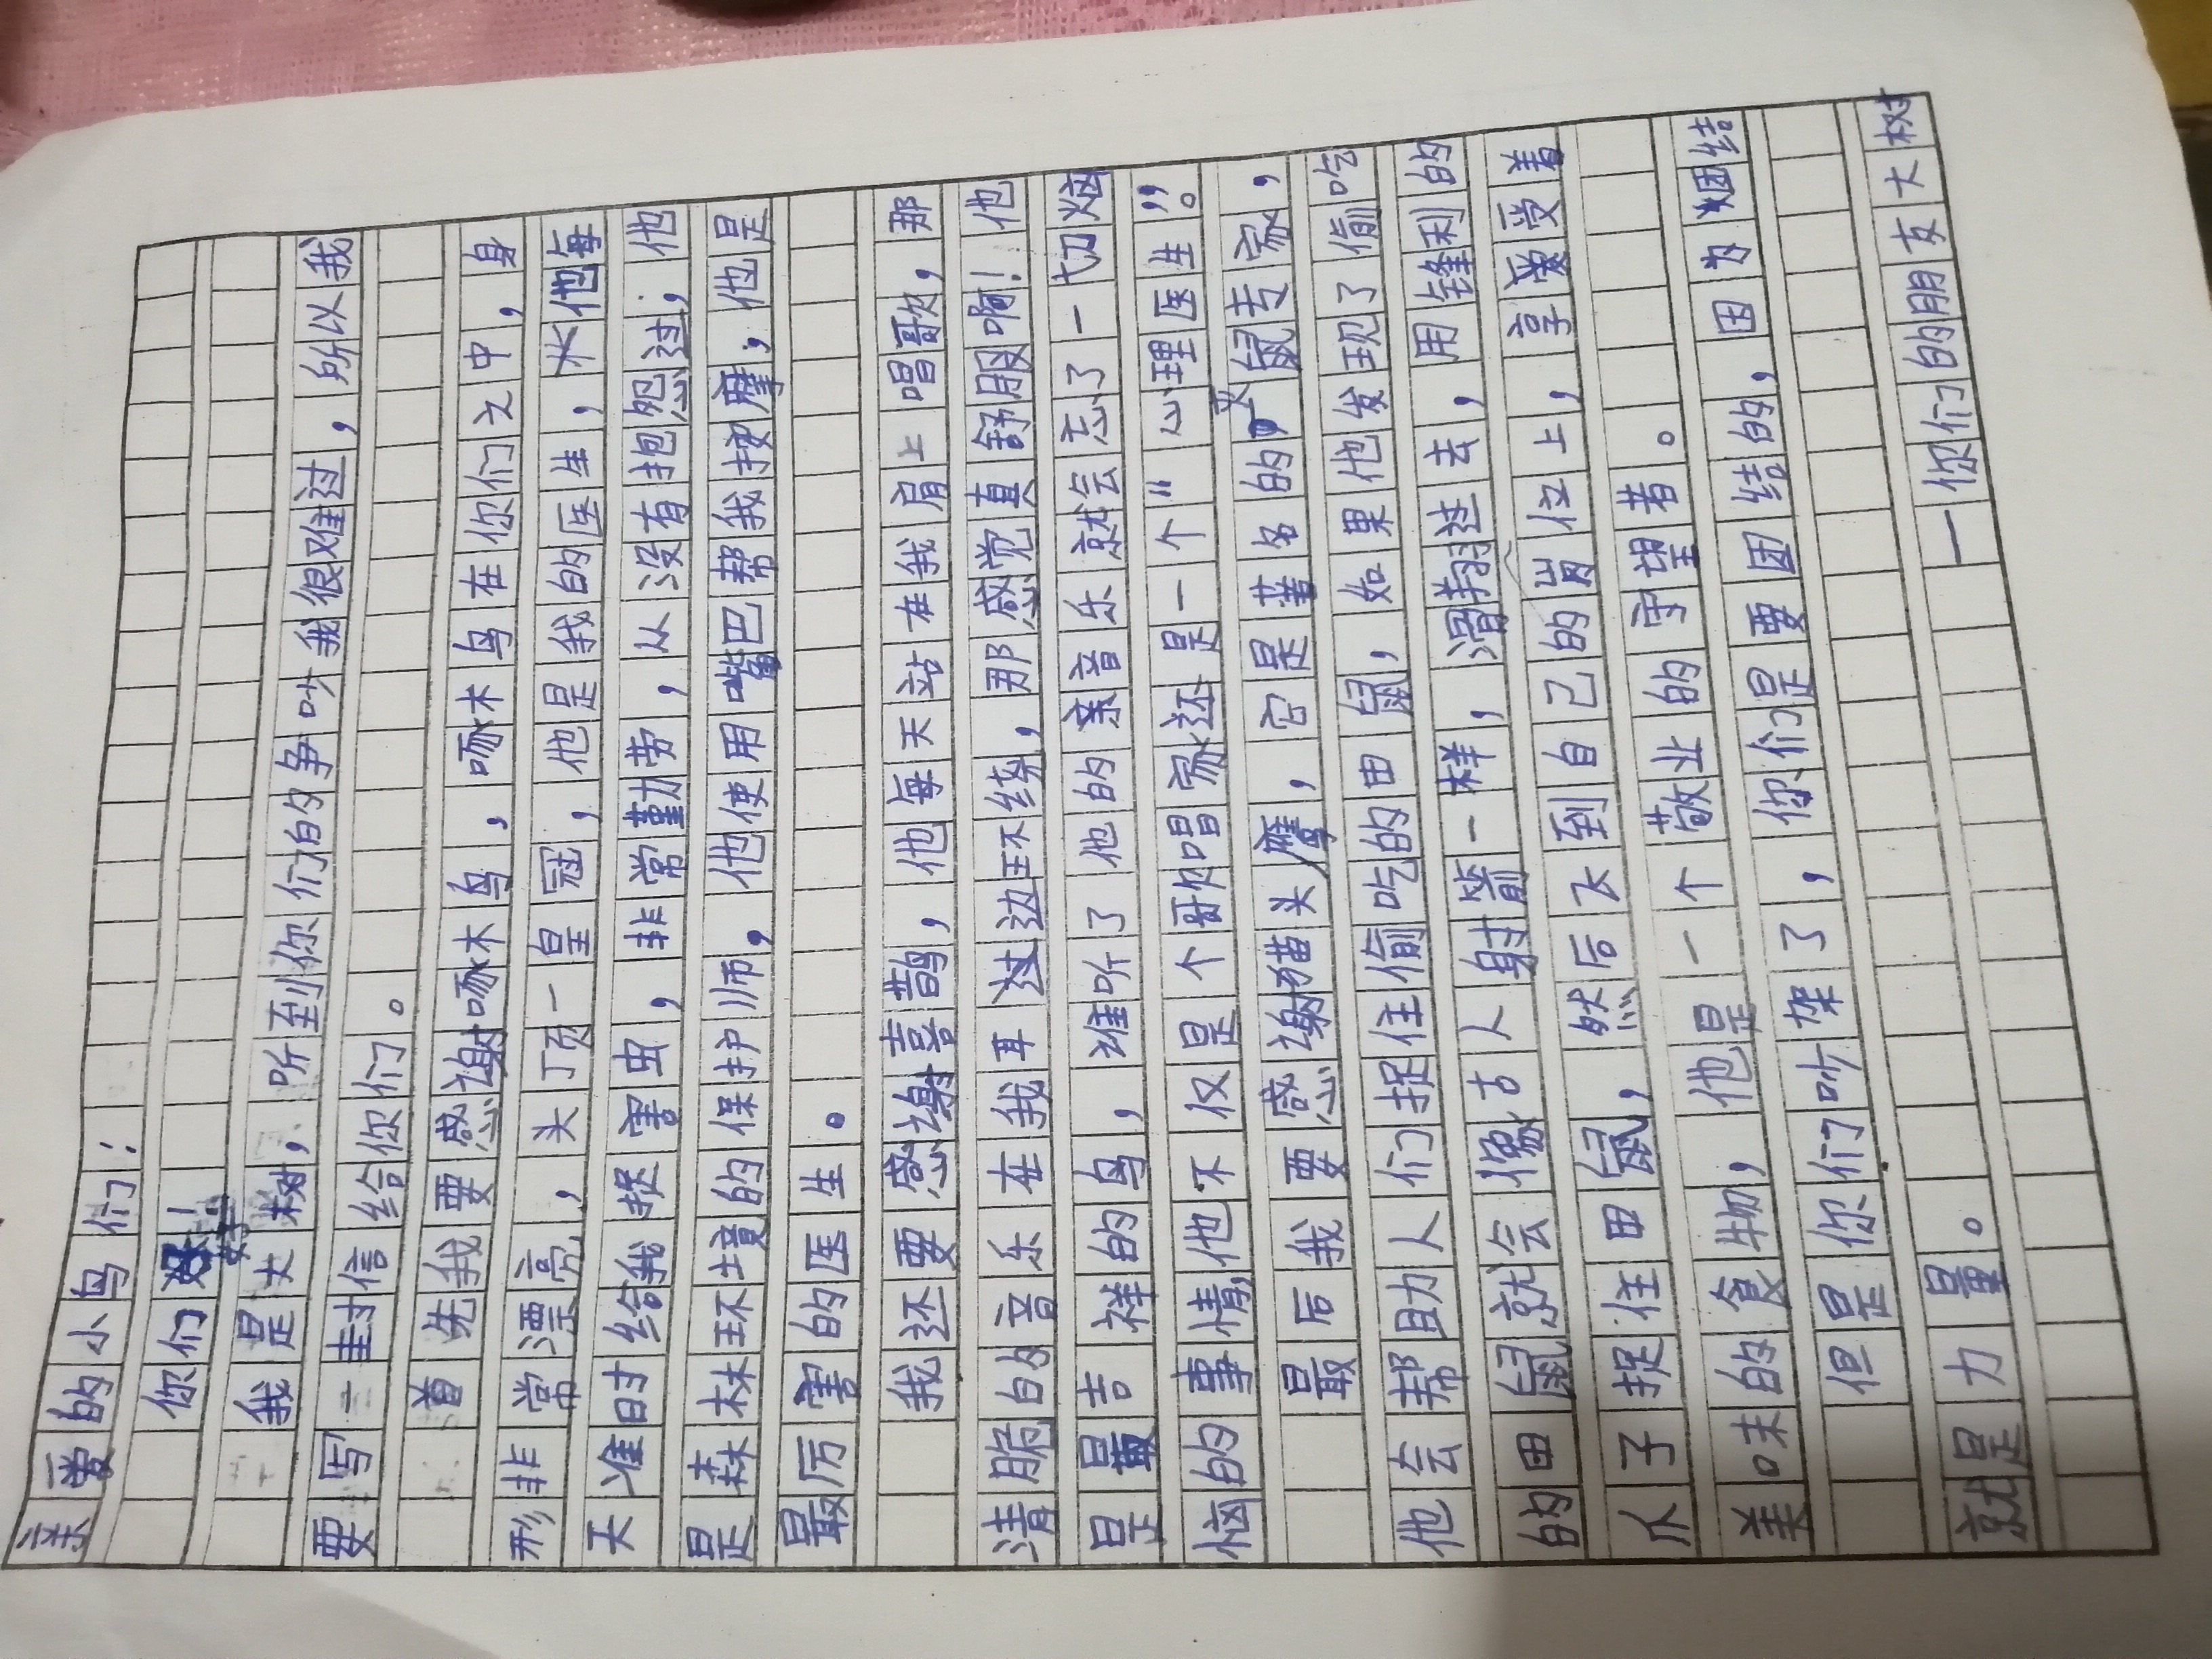 亲爱的小鸟们：
你们好！
我是大树，听到你们的争吵我很难过，所以我
要写一封信给你们。
首先我要感谢啄木鸟，啄木鸟在你们之中，身
形非常漂亮，头顶一星冠，他是我的医生，他每
天准时给我捉害虫，非常勤劳，从没有抱怨过，他
是森林环境的保护师，他使用嘴巴帮我按摩，他是
最厉害的医生。
我还要感谢喜鹊，他每天站在我肩上唱歌，那
清脆的音乐在我耳过边环绕，那感觉真舒服啊！他
是最吉祥的鸟，谁听了他的亲音乐就会忘了一切烦
恼的事情，他不仅是个歌唱家还是一个“心理医生”。
最后我要感谢猫头鹰，它是著名的灭鼠专家，
他会帮助人们捉住偷吃的田鼠，如果他发现了偷吃
的田鼠就会像古人射箭一样，滑翔过去，用锋利的
爪子捉住田鼠，然后飞到自己的岗位上，享受着
美味的食物，他是一个敬业的守望者。
但是你们吵架了，你们是要团结的，因为团结
就是力量。
一你们的朋友大树